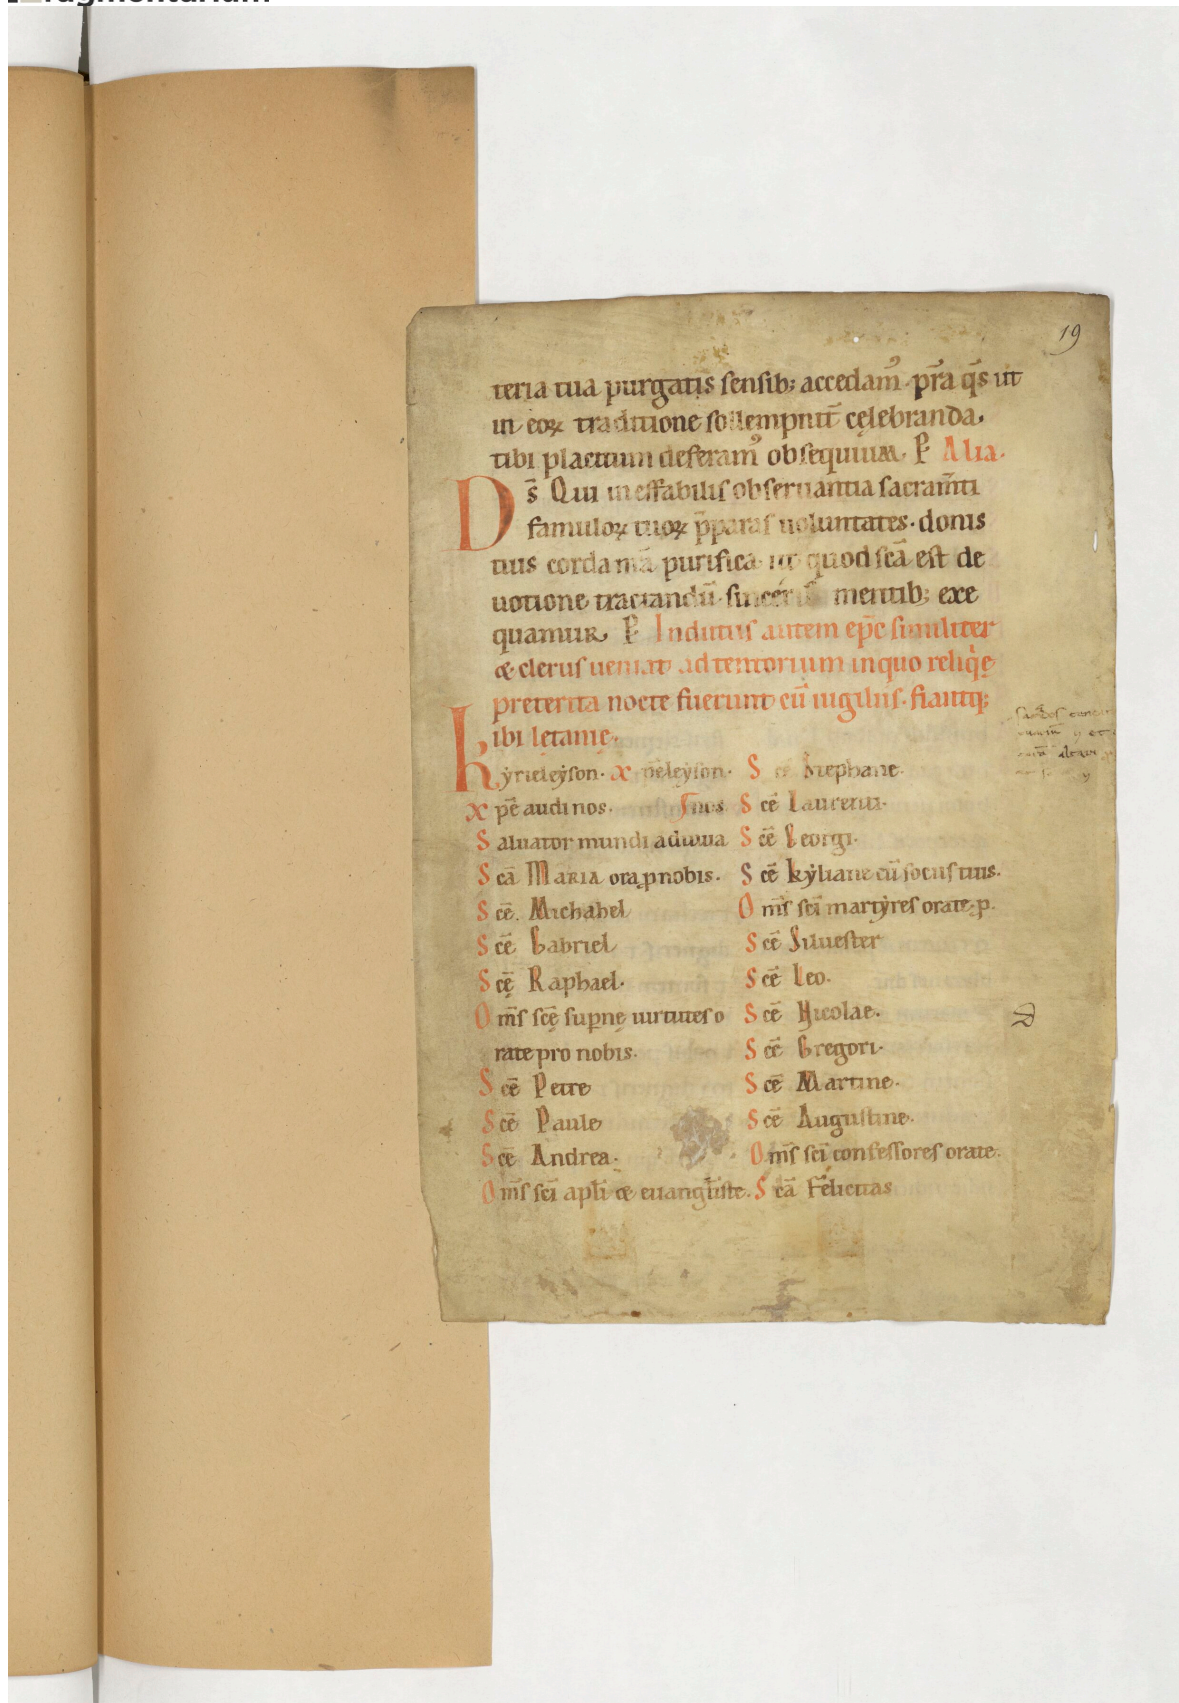 19
teria tua purgatis sensib; accedam᾽. p̄ra q̄s ut
in eoꝝ traditione sollempnit̄ cęlebranda.
tibi placitum deferam᾽ obsequium. P. Alia.
Ds̄ Qui ineffabilis obseruantia sacram̄ti
famuloꝝ tuoꝝ p̄paras uoluntates. donis
tuis corda nr̄a purifica. ut quod sc̄a est de
uotione tractandū. sinceris mentib; exe
quamur. P. Indutus autem ep̄c similiter
& clerus ueniat ad tentorium in quo reliq̇ę
preterita nocte fuerunt cū uigiliis. fiantq;
ibi lętanię.
Kẏrieleẏson. xp̄eleẏson.
xp̄e audi nos.
Saluator mundi adiuua nos
Sc̄a MARIA ora p nobis.
Sc̄e. Michahel
Sc̄e Gabriel
Sc̄ę Raphael.
Om̄s sc̄ę supnę uirtutes o
rate pro nobis.
Sc̄e Petre
Sc̄e Paule
Sc̄e Andrea.
Om̄s sc̄i apl̄i & euangl̄iste.
Sc̄e Stephane.
Sc̄e Laurenti.
Sc̄e Georgi.
Sc̄e kẏliane cū sociis tuis.
Om̄s sc̄i martẏres orate. p.
Sc̄e Siluester
Sc̄e Leo.
Sc̄e Nicolae.
Sc̄e Gregori.
Sc̄e Martine.
Sc̄e Augustine.
Om̄s sc̄i confessores orate.
Sc̄a Felicitas